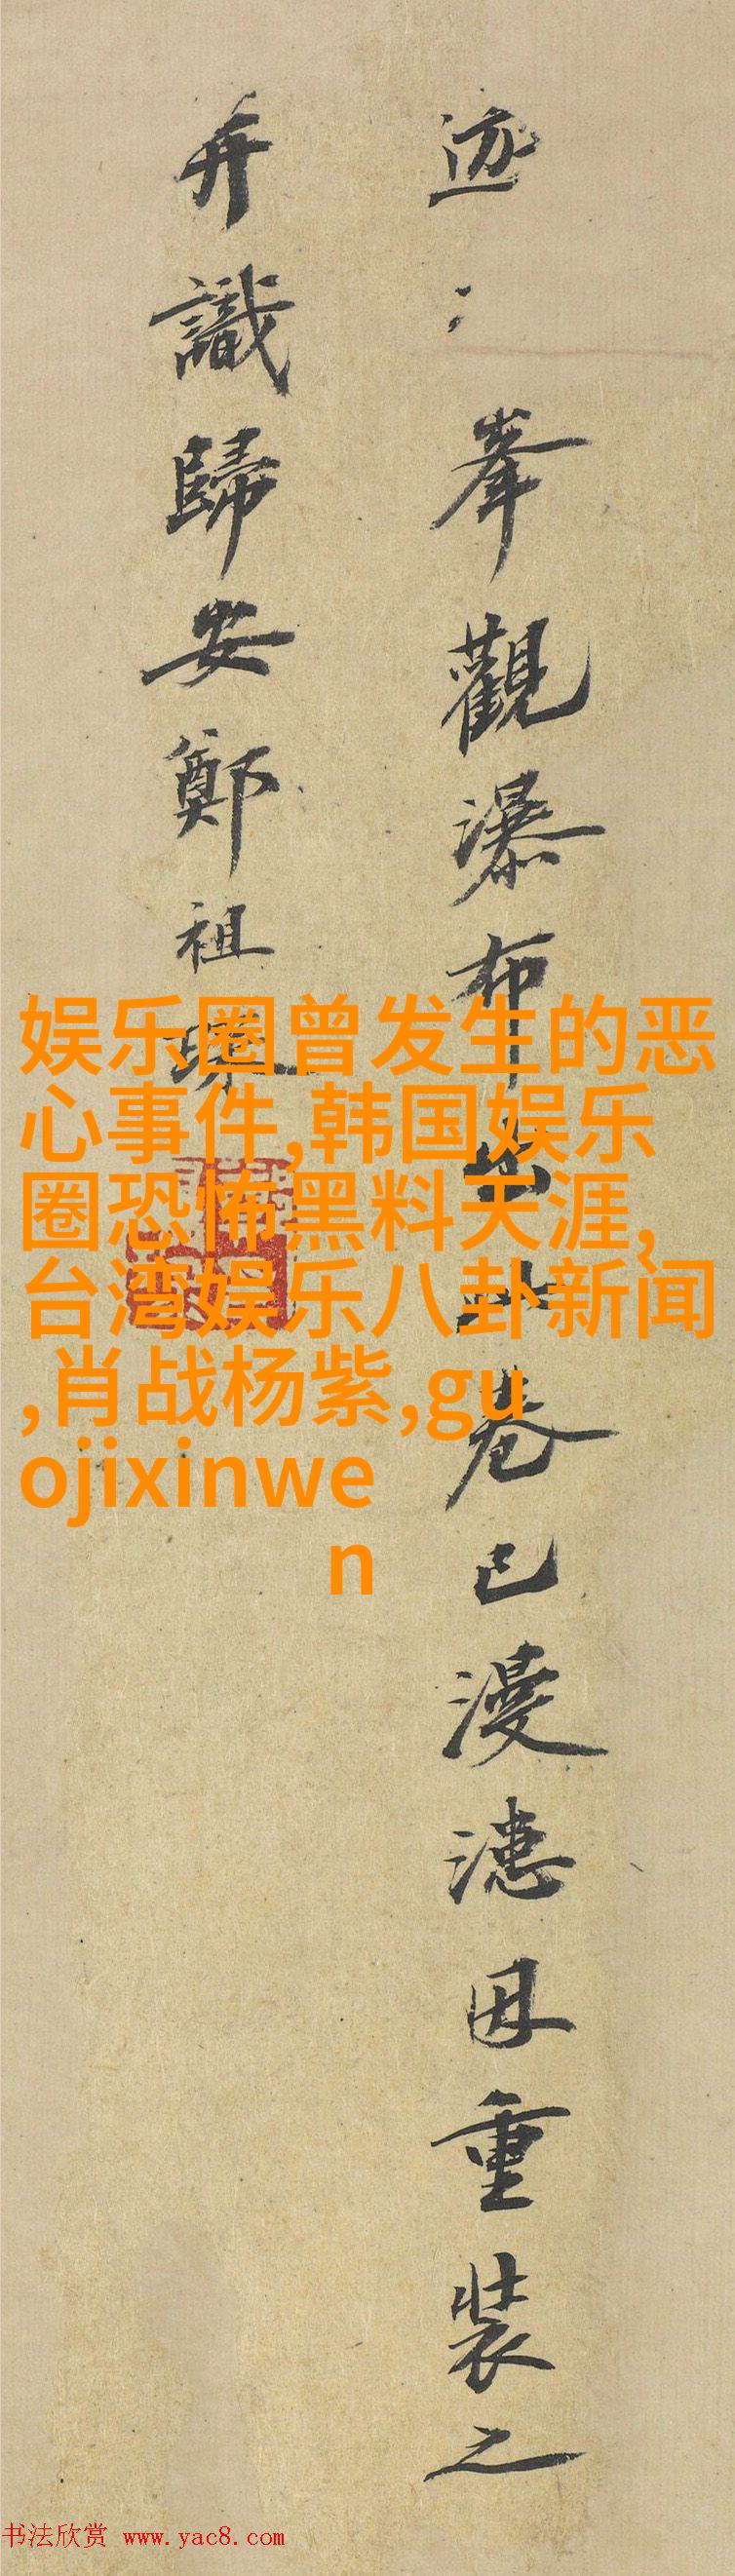 迹〻峯觀瀑布山水卷已漫漶因重裝之
并識歸安鄭祖琛
娱乐圈曾发生的恶
心事件,韩国娱乐
圈恐怖黑料天涯,
台湾娱乐八卦新闻
,肖战杨紫,gu
ojixinwe
n
书法欣赏 www.yac8.com